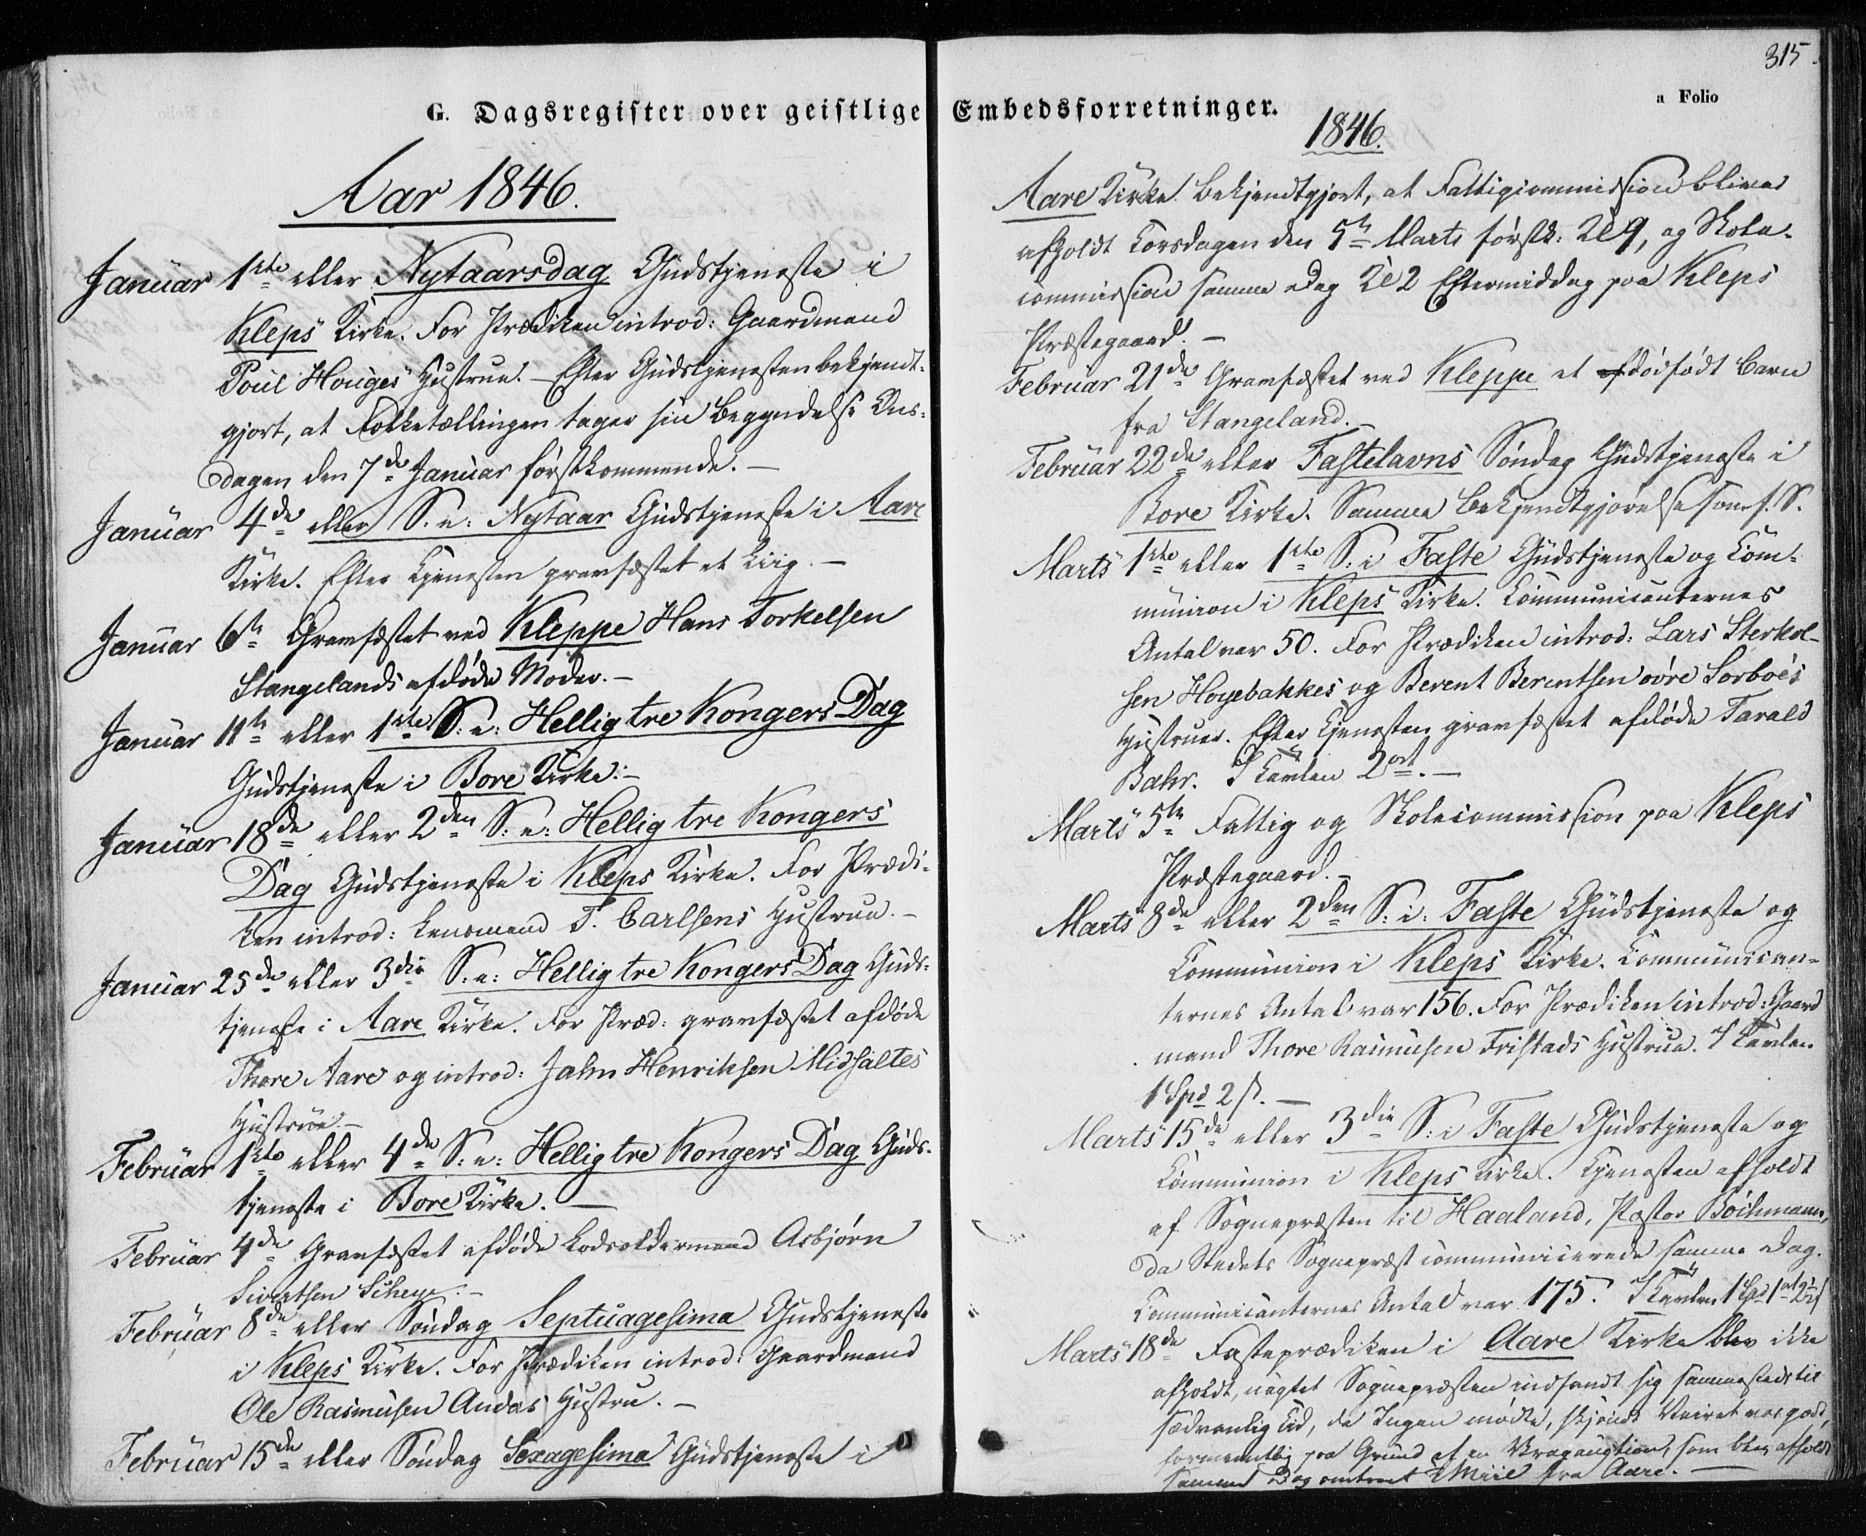 315.
a Folio
G. Dagsregister over geistlige Embedsforretninger.
Aar 1846.
Januar 1ste eller Nytaarsdag Gudstjeneste i
Kleps Kirke. For Prædiken introd: Gaardmand
Poul Houges Hustrue. – Efter Gudstjenesten bekjendt-
gjort, at Folketællingen tager sin Begyndelse Ons-
dagen den 7de Januar førstkommende. –
Januar 4de eller S. e: Nytaar Gudstjeneste i Aare
Kirke. Efter Tjenesten gravfæstet et Liig. –
Januar 6te Gravfæstet ved Kleppe Hans Torkelsen
Stangelands afdøde Moder. –
Januar 11te eller 1ste S: e: Hellig tre Kongers Dag
Gudstjeneste i Bore Kirke. –
Januar 18de eller 2den S: e: Hellig tre Kongers
Dag Gudstjeneste i Kleps Kirke. For Prædi-
ken introd: Lensmand T. Carlsens Hustrue. –
Januar 25de eller 3die S. e: Hellig tre Kongers Dag Guds-
tjeneste i Aare Kirke. For Præd: gravfæstet afdøde
Thore Aare og introd: Jahn Henriksen Midsaltes
Hustrue. –
Februar 1ste eller 4de S: e: Hellig tre Kongers Dag Guds-
tjeneste i Bore Kirke. –
Februar 4de Gravfæstet afdøde Lodsoldermand Asbjørn
Sivertsen Scheye. –
Februar 8de eller Søndag Septuagesima Gudstjeneste
i Kleps Kirke. For Prædiken introd: Gaardmand
Ole Rasmusen Andas Hustru. –
Februar 15de eller Søndag Sexagesima Gudstjeneste i
1846.
Aare Kirke. Bekjendtgjort, at Fattigcommission bliver
afholdt Torsdagen den 5te Marts førstk: Kl 9, og Skole-
commission samme Dag Kl 2 Eftermiddag paa Kleps
Præstegaard. –
Februar 21de Gravfæstet ved Kleppe et dødfødt Barn
fra Stangeland. –
Februar 22de eller Fastelavns Søndag Gudstjeneste i
Bore Kirke. Samme Bekjendtgjørelse som f. S.
Marts 1ste eller 1ste S: i Faste Gudstjeneste og Com-
munion i Kleps Kirke. Communicanternes
Antal var 50. For Prædiken introd: Lars Sterkol-
sen Hoyebakkes og Berent Berentsen øvre Sorboes
Hustruer. Efter Tjenesten gravfæstet afdøde Tarald
Bahr. I Tavlen 2 ort. –
Marts 5te Fattig og Skolecommission paa Kleps
Præstegaard. –
Marts 8de eller 2den S: i: Faste Gudstjeneste og
Communion i Kleps Kirke. Communican-
ternes Antal var 156. For Prædiken introd: Gaard
mand Thore Rasmusen Fristads Hustrue. I Tavlen
1 Spd 2 s. –
Marts 15de eller 3die S: i Faste Gudstjeneste og
Communion i Kleps Kirke. Tjenesten afholdt
af Sognepræsten til Haaland, Pastor Bøchmann,
da Stedets Sognepræst communicerede samme Dag.
Communicanternes Antal var 175. I Tavlen 1 Spd 1 ort 2½ s
Marts 18de Fasteprædiken i Aare Kirke blev ikke
afholdt, uagtet Sognepræsten indfandt sig sammesteds til
sædvanlig Tid, da Ingen mødte, skjøndt Veiret var godt,
formeentlig paa Grund af en Vragauction, som blev afholdt
samme Dag omtrent Miil fra Aare. –